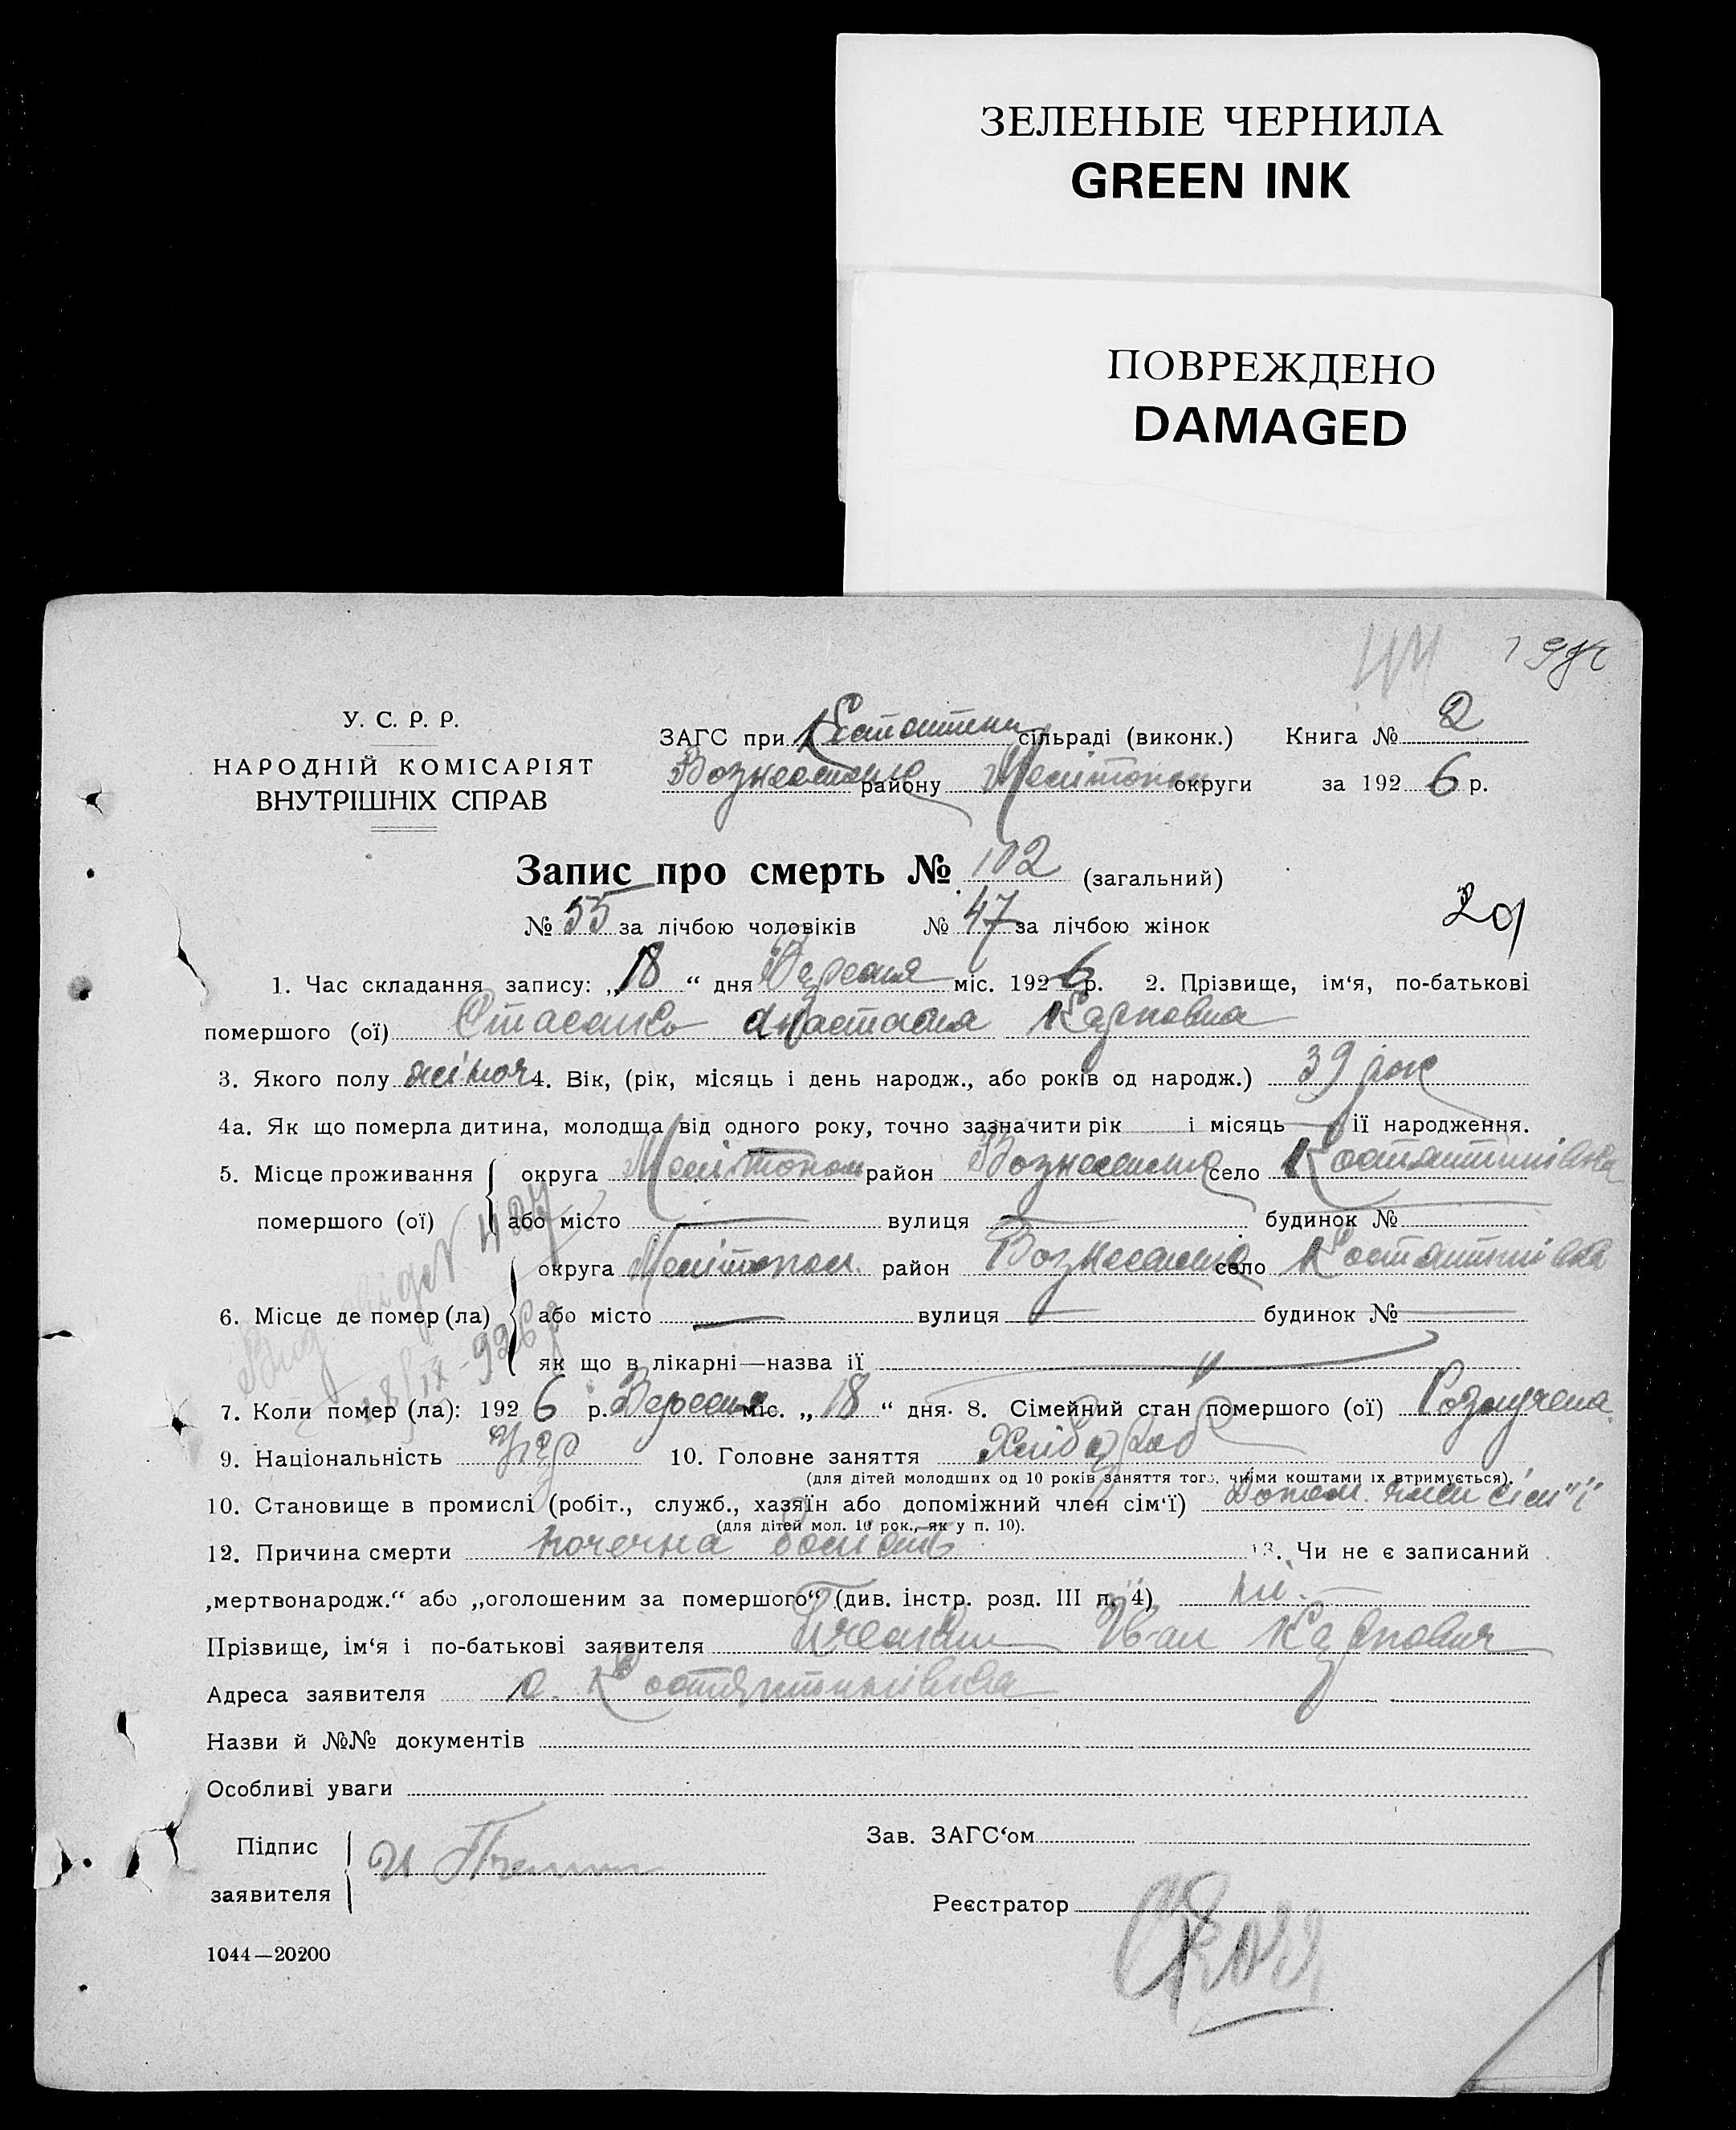 ЗЕЛЕНЫЕ ЧЕРНИЛА
GREEN INK
ПОВРЕЖДЕНО
DAMAGED
У. С. Р. Р.
НАРОДНІЙ КОМІСАРІЯТ
ВНУТРІШНІХ СПРАВ
ЗАГС при Костянтин сільраді (виконк.) Книга № 2
Вознесенськ району Мелітопол округи за 1926 р.
Запис про смерть № 102 (загальний)
№ 55 за лічбою чоловіків № 47 за лічбою жінок
201
1. Час складання запису: „18“ дня Вересня міс. 1926 р. 2. Прізвище, ім‘я, по-батькові
помершого (ої) Стасенко Анастасия Карповна
3. Якого полу жіноч 4. Вік, (рік, місяць і день народж., або років од народж.) 39 рок
4а. Як що померла дитина, молодща від одного року, точно зазначити рік і місяць її народження.
5. Місце проживання округа Мелітопол район Вознесенськ село Костянтинівка
помершого (ої) або місто — вулиця — будинок №
округа Мелітопол. район Вознесенськ село Костянтинівка
6. Місце де помер (ла) або місто — вулиця — будинок № —
як що в лікарні—назва її "
18/IX-926 р
7. Коли помер (ла): 1926 р. Вересня міс. „18“ дня. 8. Сімейний стан помершого (ої) Розлучена.
9. Національність Укр 10. Головне заняття Хлібороб
(для дітей молодших од 10 років заняття того, чиїми коштами їх втримується).
10. Становище в промислі (робіт., служб., хазяїн або допоміжний член сім‘ї) Допом. член сім"ї
(для дітей мол. 10 рок., як у п. 10).
12. Причина смерти почечна болість 13. Чи не є записаний
„мертвонародж.“ або „оголошеним за помершого“ (див. інстр. розд. III п. 4) ні.
Прізвище, ім‘я і по-батькові заявителя Іван Карпович
Адреса заявителя с. Костянтинівка
Назви й №№ документів
Особливі уваги
Підпис
заявителя
Зав. ЗАГС‘ом
Реєстратор
1044—20200